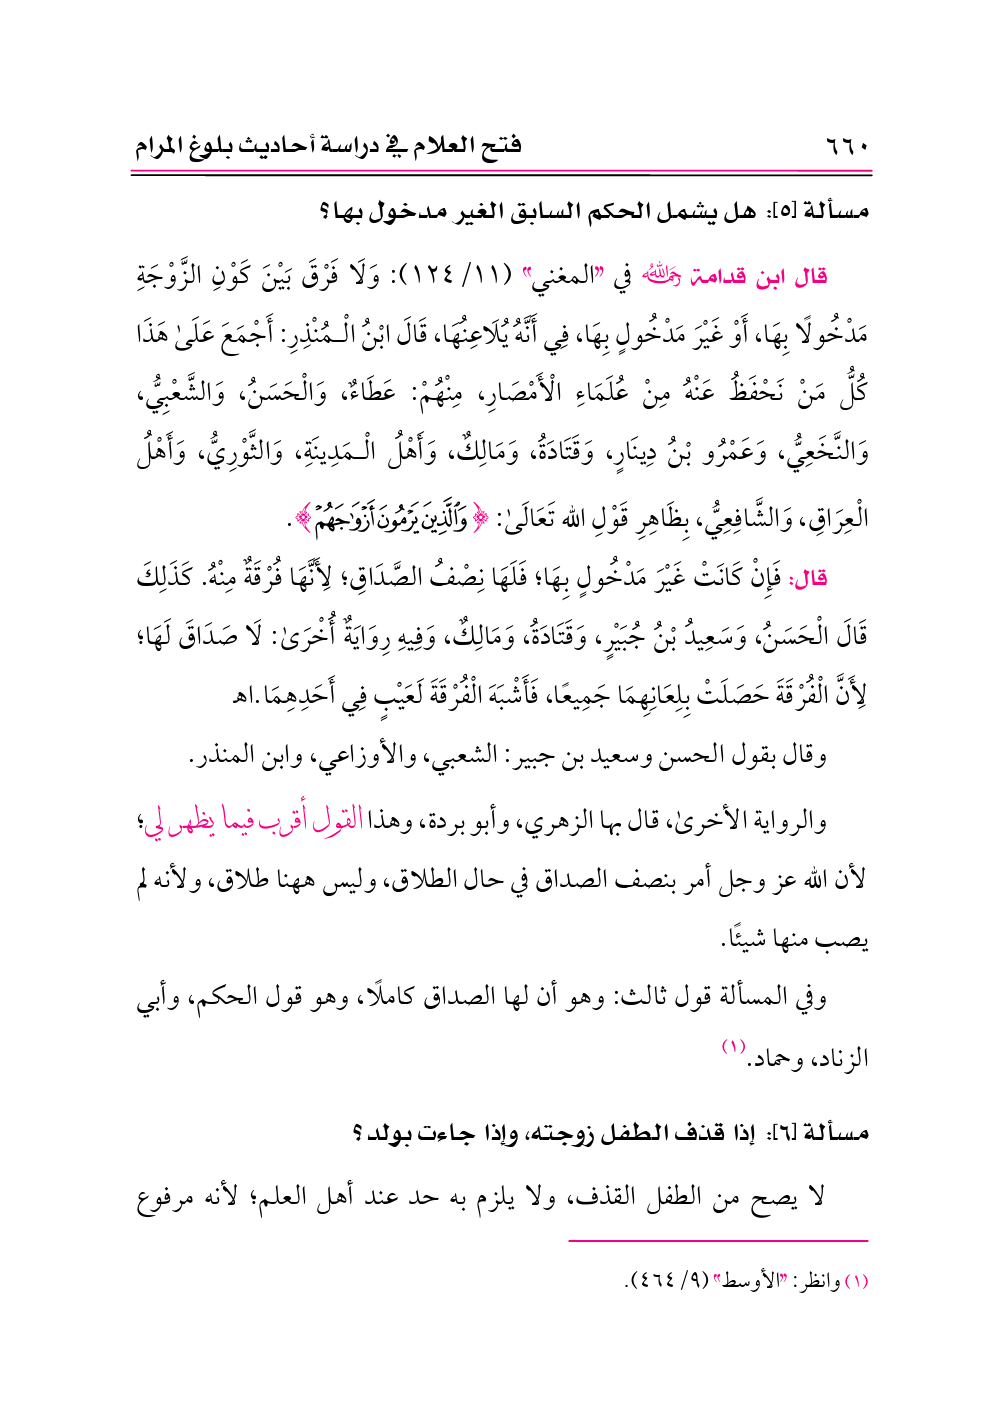 ٦٦٠ فتح العلام في دراسة أحاديث بلوغ المرام
مسألة [٥]: هل يشمل الحكم السابق الغير مدخول بها؟
قال ابن قدامة رحمه الله في "المغني" (١١/ ١٢٤): وَلَا فَرْقَ بَيْنَ كَوْنِ الزَّوْجَةِ
مَدْخُولًا بِهَا، أَوْ غَيْرَ مَدْخُولٍ بِهَا، فِي أَنَّهُ يُلَاعِنُهَا، قَالَ ابْنُ الْـمُنْذِرِ: أَجْمَعَ عَلَىٰ هَذَا
كُلُّ مَنْ نَحْفَظُ عَنْهُ مِنْ عُلَمَاءِ الْأَمْصَارِ، مِنْهُمْ: عَطَاءٌ، وَالْحَسَنُ، وَالشَّعْبِيُّ،
وَالنَّخَعِيُّ، وَعَمْرُو بْنُ دِينَارٍ، وَقَتَادَةُ، وَمَالِكٌ، وَأَهْلُ الْـمَدِينَةِ، وَالثَّوْرِيُّ، وَأَهْلُ
الْعِرَاقِ، وَالشَّافِعِيُّ، بِظَاهِرِ قَوْلِ الله تَعَالَىٰ: ﴿وَٱلَّذِينَ يَرْمُونَ أَزْوَٰجَهُمْ﴾.
قال: فَإِنْ كَانَتْ غَيْرَ مَدْخُولٍ بِهَا؛ فَلَهَا نِصْفُ الصَّدَاقِ؛ لِأَنَّهَا فُرْقَةٌ مِنْهُ. كَذَلِكَ
قَالَ الْحَسَنُ، وَسَعِيدُ بْنُ جُبَيْرٍ، وَقَتَادَةُ، وَمَالِكٌ، وَفِيهِ رِوَايَةٌ أُخْرَىٰ: لَا صَدَاقَ لَهَا؛
لِأَنَّ الْفُرْقَةَ حَصَلَتْ بِلِعَانِهِمَا جَمِيعًا، فَأَشْبَهَ الْفُرْقَةَ لَعَيْبٍ فِي أَحَدِهِمَا.اهـ
وقال بقول الحسن وسعيد بن جبير: الشعبي، والأوزاعي، وابن المنذر.
والرواية الأخرىٰ، قال بها الزهري، وأبو بردة، وهذا القول أقرب فيما يظهر لي؛
لأن الله عز وجل أمر بنصف الصداق في حال الطلاق، وليس ههنا طلاق، ولأنه لم
يصب منها شيئًا.
وفي المسألة قول ثالث: وهو أن لها الصداق كاملًا، وهو قول الحكم، وأبي
الزناد، وحماد.(١)
مسألة [٦]: إذا قذف الطفل زوجته، وإذا جاءت بولد؟
لا يصح من الطفل القذف، ولا يلزم به حد عند أهل العلم؛ لأنه مرفوع
(١) وانظر: "الأوسط" (٩/ ٤٦٤).